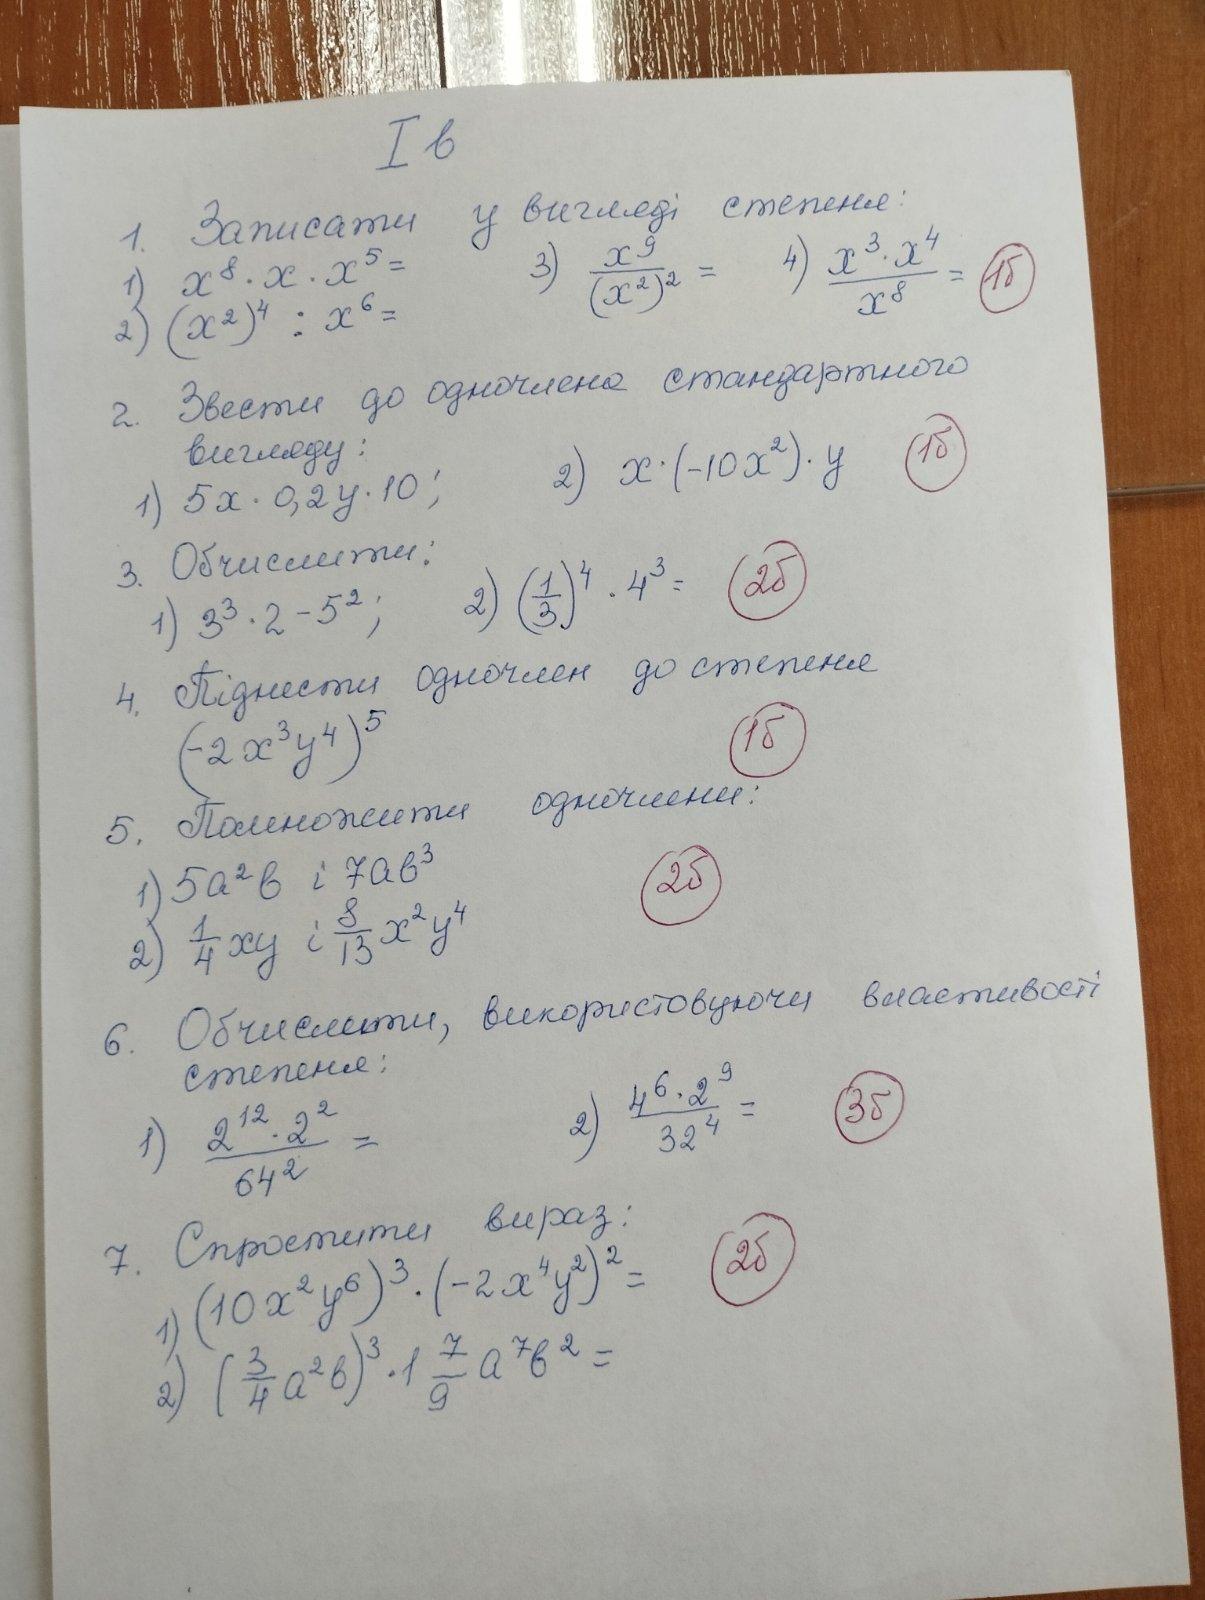 I в
1. Записати у вигляді степеня:
1) x⁸ · x · x⁵ = 3) x⁹/(x²)² = 4) (x³ · x⁴)/x⁸ = 1б
2) (x²)⁴ : x⁶ =
2. Звести до одночлена стандартного
вигляду:
1) 5x · 0,2y · 10; 2) x · (-10x²) · y 1б
3. Обчислити:
1) 3³ · 2 - 5²; 2) (1/3)⁴ · 4³ = 2б
4. Піднести одночлен до степеня
(-2x³y⁴)⁵ 1б
5. Помножити одночлени:
1) 5a²b і 7ab³ 2б
2) 1/4 xy і 8/13 x²y⁴
6. Обчислити, використовуючи властивості
степеня:
1) (2¹² · 2²)/64² = 2) (4⁶ · 2⁹)/32⁴ = 3б
7. Спростити вираз: 2б
1) (10x²y⁶)³ · (-2x⁴y²)² =
2) (3/4 a²b)³ · 1 7/9 a⁷b² =